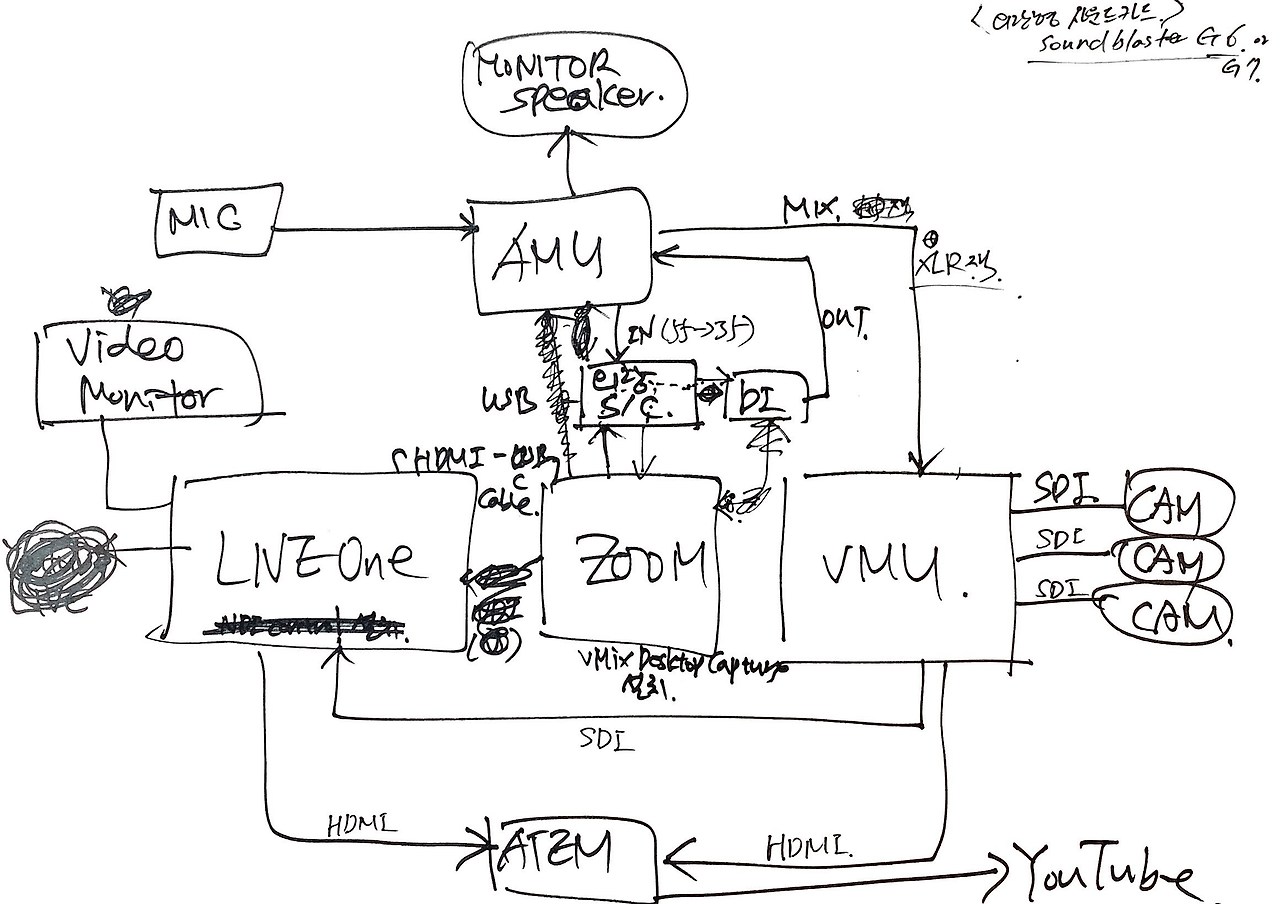 사운드카드.>
soundblaster G6. or
G7.
MONITOR
speaker.
MIC
AMU
MIX.
XLR 2개.
Video
Monitor
IN (5f->3f)
OUT.
USB
S/C.
DI
HDMI - USB
C
Cable.
LIVEOne
ZOOM
VMU.
SDI
CAM
SDI
CAM
SDI
CAM.
vMix Desktop Capture
설치.
SDI
HDMI
ATEM
HDMI.
YouTube